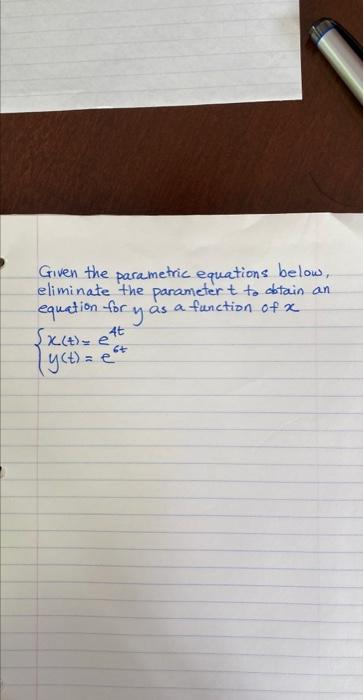 Given the parametric equations below,
eliminate the parameter t to obtain an
equation for y as a function of x
x(t) = e^4t
y(t) = e^6t